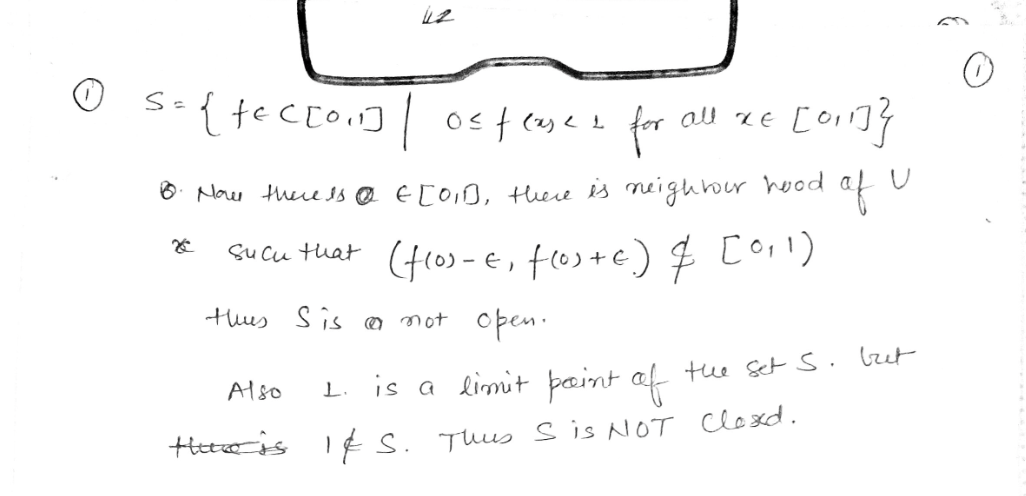 42
① S = { f ∈ C[0,1] | 0 ≤ f(x) < 1 for all x ∈ [0,1]} ①
Now there is 0 ∈ [0,1], there is neighbour hood of U
such that (f(0) - ε, f(0) + ε) ⊄ [0,1)
thus S is not open.
Also 1. is a limit point of the set S. but
there is 1 ∉ S. Thus S is NOT Closed.